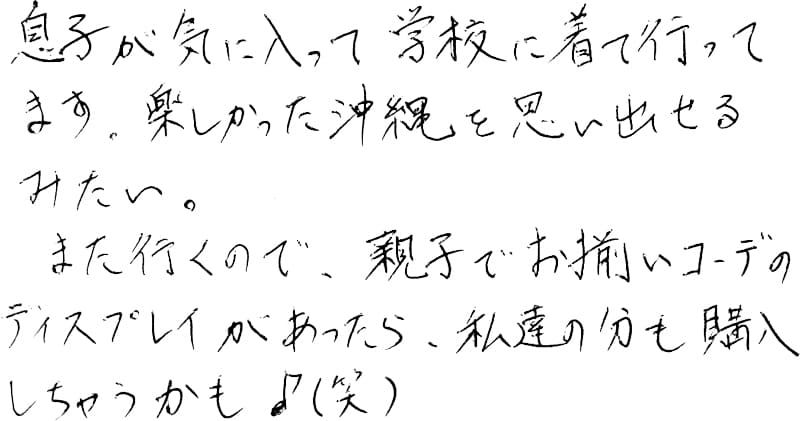 息子が気に入って学校に着て行って
ます。楽しかった沖縄を思い出せる
みたい。
また行くので、親子でお揃いコーデの
ディスプレイがあったら、私達の分も購入
しちゃうかも♪(笑)